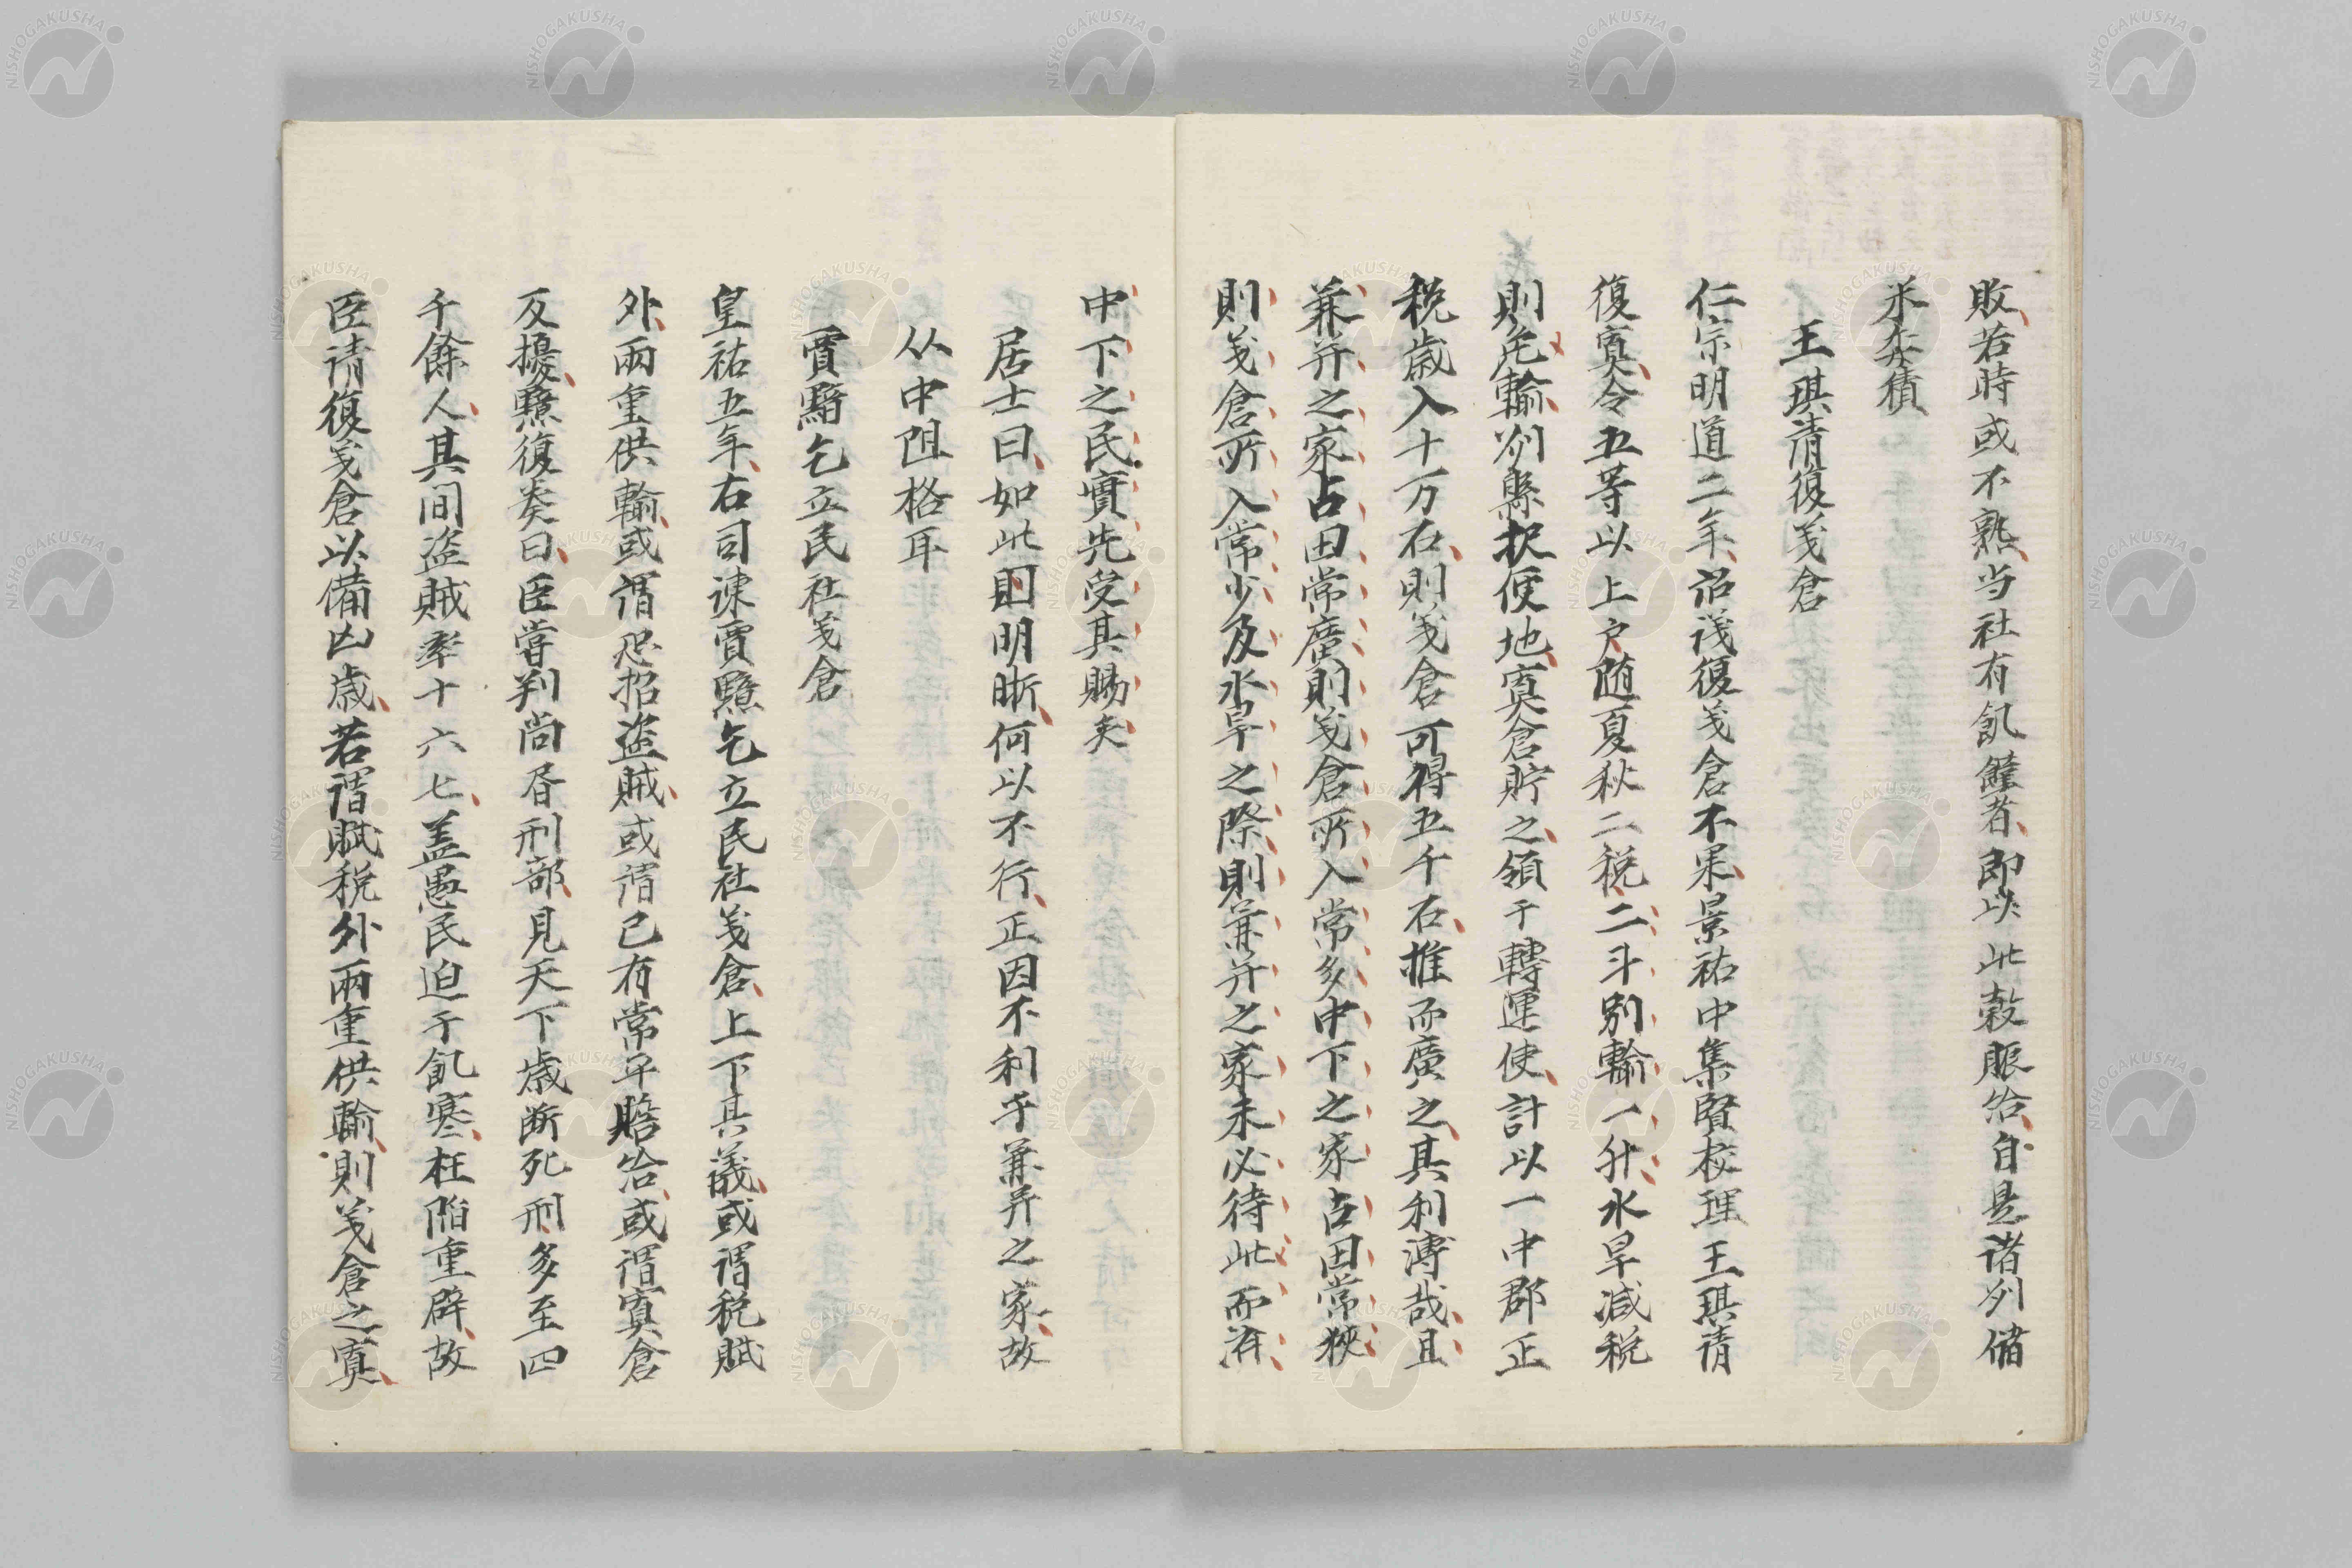 敗若時或不熟当社有飢饉者即以此穀賑給自是諸列儲
米委積
王琪請復义倉
仁宗明道二年詔議復义倉不果景祐中集賢校理王琪請
復寘令五等以上户随夏秋二税二斗別輸一升水旱减税
則免輸州縣択便地寘倉貯之領于轉運使計以一中郡正
税歲入十万石則义倉可得五千石推而廣之其利溥哉且
兼并之家占田常廣則义倉所入常多中下之家占田常狹
則义倉所入常少及水旱之際則兼并之家未必待此而済
中下之民實先受其賜矣
居士曰如此則明晰何以不行正因不利乎兼并之家故
从中阻格耳
賈黯乞立民社义倉
皇祐五年右司諌賈黯乞立民社义倉上下其議或謂税賦
外兩重供輸或謂恐招盗賊或謂已有常平賑給或謂寘倉
反擾黯復奏曰臣嘗判尚昏刑部見天下歲断死刑多至四
千餘人其间盗賊率十六七盖愚民迫于飢寒枉陥重辟故
臣请復义倉以備凶歲若謂賦税外兩重供輸則义倉之寘
NISHOGAKUSHA